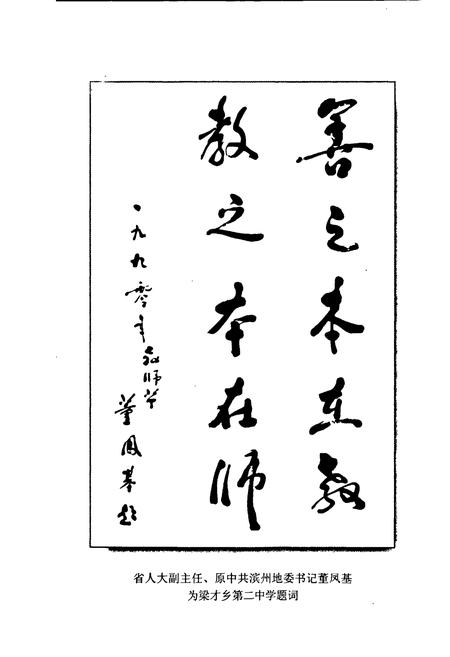 善之本在教
教之本在师
一九九零年教师节
董凤基题
省人大副主任、原中共滨州地委书记董凤基
为梁才乡第二中学题词